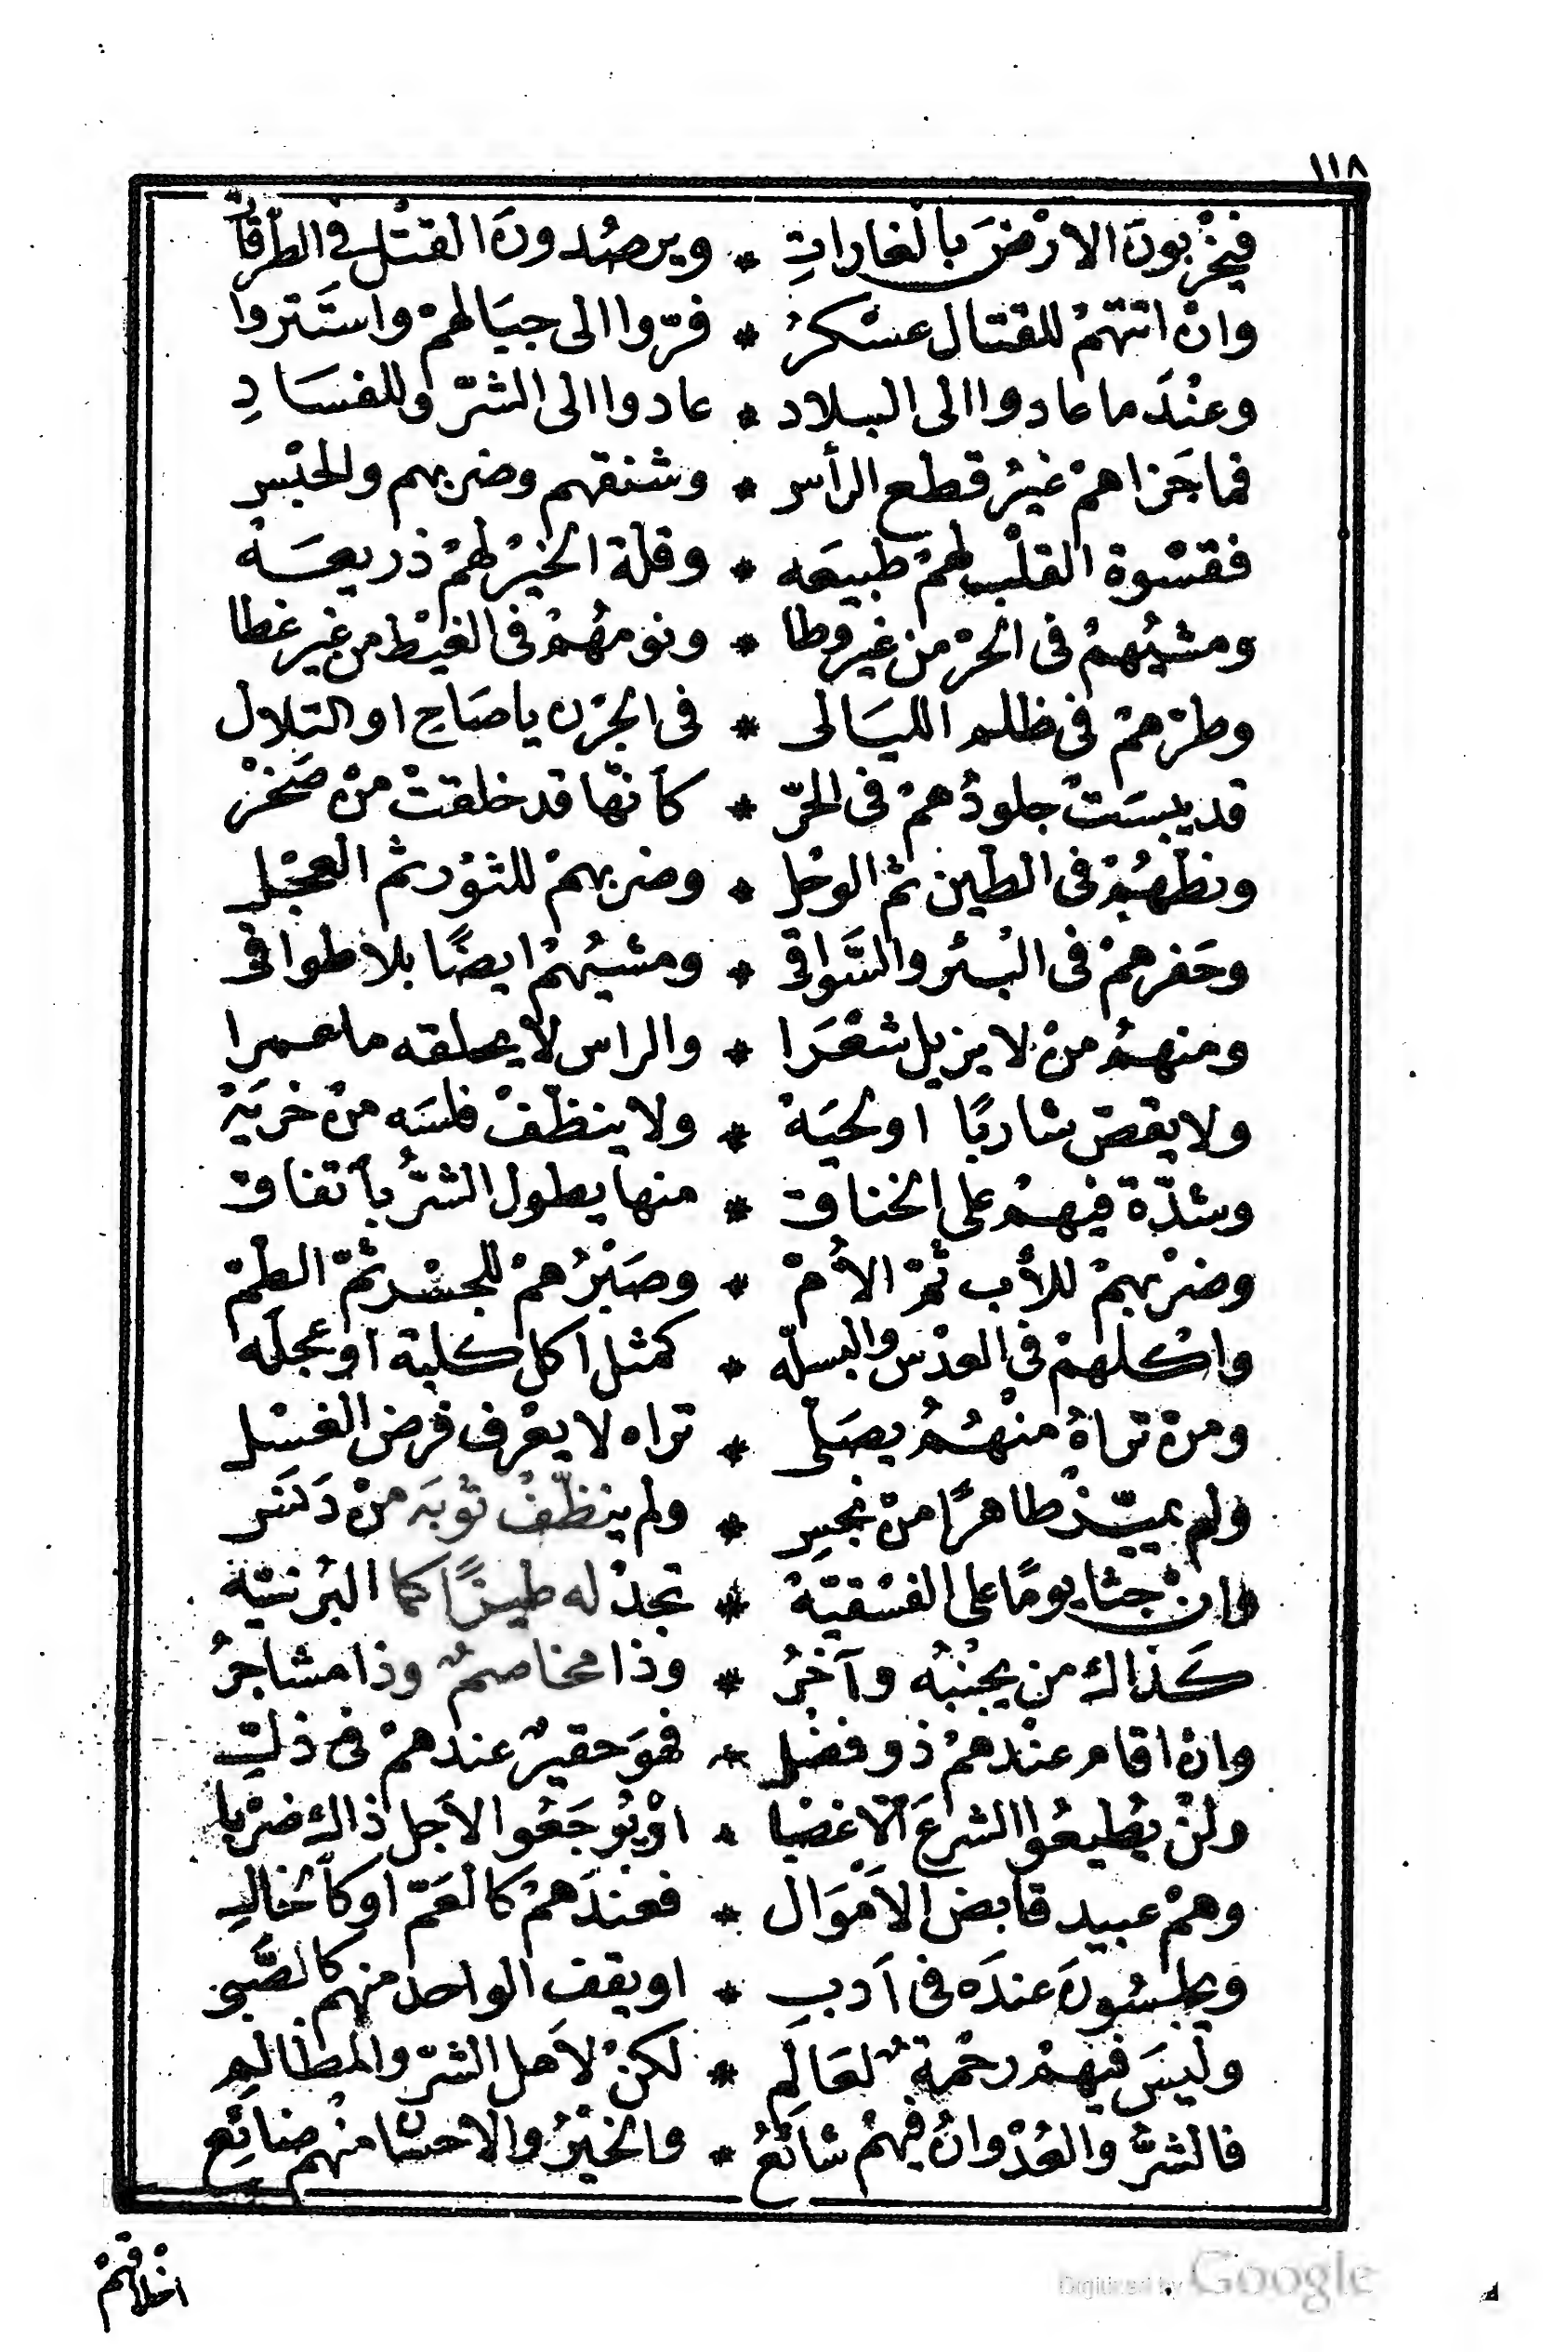 ١١٨
فيخْربونَ الارْضَ بالْغاراتِ * ويرصُدونَ القتْل فى الطرقاتِ
وانْ اتتهمْ للقتال عسْكرُ * فرّوا الى جبَالهمْ واستَتروا
وعنْدَ ما عادوا الى البلاد * عادوا الى الشرّ وللفسَادِ
فما جَزاهمْ غيْرُ قطع الرأس * وشنقهم وضربهم والحبْس
فقسْوة القلْب لهمْ طبيعَه * وقلة الخيْر لهمْ ذريعَهْ
ومشيُهمْ فى الحرّ من غير وطا * ونومُهُمْ فى الغيْط من غير غطا
وطرْهمْ فى ظلم الليَالى * فى الجرْن ياصَاح او التلال
قد يبسَتْ جلودُهمْ فى الحرّ * كأنّها قد خلقتْ منْ صَخرْ
ونطّهُمْ فى الطّين ثم الوحْل * وضربهمْ للثوْر ثم العجْل
وحَفرهمْ فى البئر والسَّواقى * ومشيُهمْ ايضًا بلا طواقى
ومنهمُ منْ لا يزيل شعْرَا * والراس لا يحلقه ما عمرا
ولا يقصّ شاربًا اولحيَهْ * ولا ينظّفْ فلسَه منْ خريَهْ
وشدّة فيهمْ على الخناق * منها يطول الشرُّ باتفاق
وضرْبهمْ للأب ثمّ الأمّ * وصَبْرُهمْ للجسْر ثمّ الطمّ
واكلهمْ فى العدْس والبسلّه * كمثل اكل كلبة او عجلَه
ومنْ تراهُ منْهُمُ يصَلّى * تراه لا يعْرف فرض الغسْل
ولم يميّزْ طاهرًا منْ نجسِ * ولم ينظّفْ ثوْبَه منْ دَنَسِ
وانْ جثا يومًا على الفسْقيّهْ * تجدْ له طيزًا كما البرْنيّهْ
كَذاك من بجنْبه وآخرُ * وذا مخاصمٌ وذا مشاجرُ
وانْ اقام عنْدهمْ ذو فضْل * فهوَ حقيرٌ عندهمْ فى ذلِّ
ولنْ يطيعُوا الشرعَ الّا غصْبا * اوْ يُوجَعُوا لأجل ذاك ضرْبا
وهمْ عبيد قابض الأمْوَال * فعنْدَهمْ كالعَمّ او كالْخالِ
ويجلسُونَ عندَه فى أدبِ * او يقف الواحد منهم كالصَّبى
وليسَ فيهمْ رحْمةٌ لعَالِمِ * لكنْ لأهل الشرّ والمظَالمِ
فالشرُّ والعُدْوانُ فيهمْ شائعُ * والخيْرُ والاحسَان منهم ضائع
اخلاقهمْ
Digitized by Google